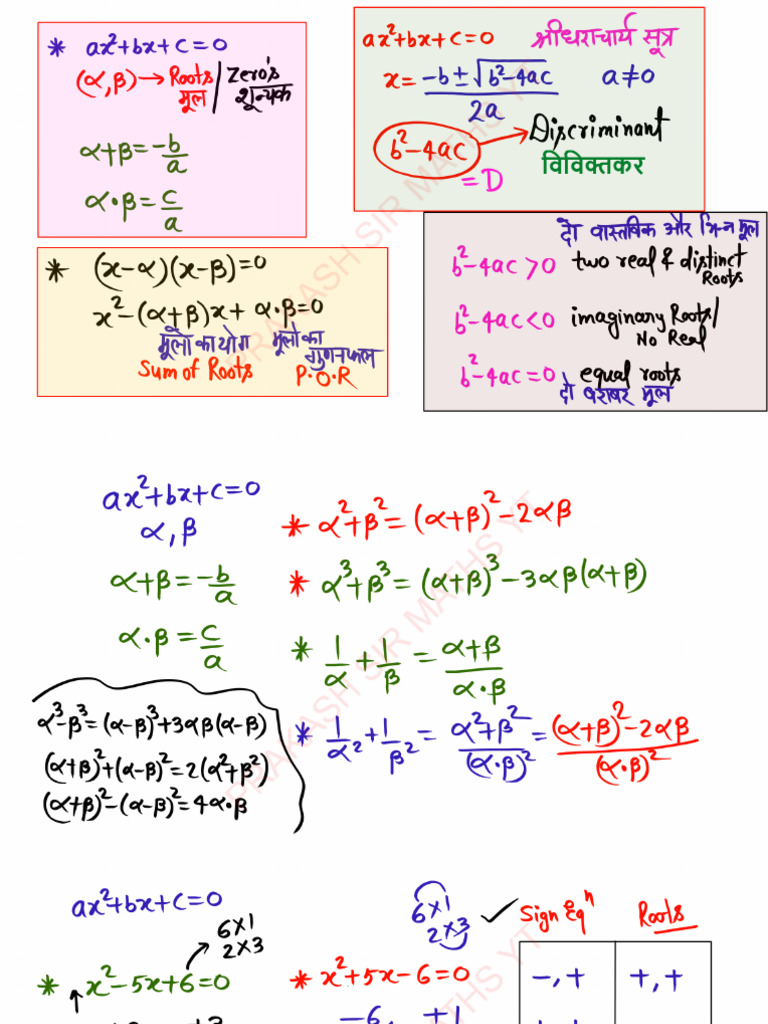 * ax²+bx+c=0
(α,β)→Roots/Zero's
मूल/शून्यक
α+β=-b/a
α·β=c/a
ax²+bx+c=0 श्रीधराचार्य सूत्र
x=-b±√b²-4ac/2a a≠0
b²-4ac→Discriminant
=D विविक्तकर
* (x-α)(x-β)=0
x²-(α+β)x+α·β=0
मूलों का योग मूलों का गुणनफल
Sum of Roots P.O.R
दो वास्तविक और भिन्न मूल
b²-4ac>0 two real & distinct Roots
b²-4ac<0 imaginary Roots/
No Real
b²-4ac=0 equal roots
दो बराबर मूल
ax²+bx+c=0
α,β
α+β=-b/a
α·β=c/a
* α²+β²=(α+β)²-2αβ
* α³+β³=(α+β)³-3αβ(α+β)
* 1/α+1/β=α+β/α·β
* 1/α²+1/β²=α²+β²/(α·β)²=(α+β)²-2αβ/(α·β)²
α³-β³=(α-β)³+3αβ(α-β)
(α+β)²+(α-β)²=2(α²+β²)
(α+β)²-(α-β)²=4α·β
ax²+bx+c=0
6×1
2×3
* x²-5x+6=0
6×1
2×3
* x²+5x-6=0
-6, +1
✓ Sign Eqⁿ Roots
-,+ +,+
PRAKASH SIR MATHS YT
PRAKASH SIR MATHS YT
MATHS YT